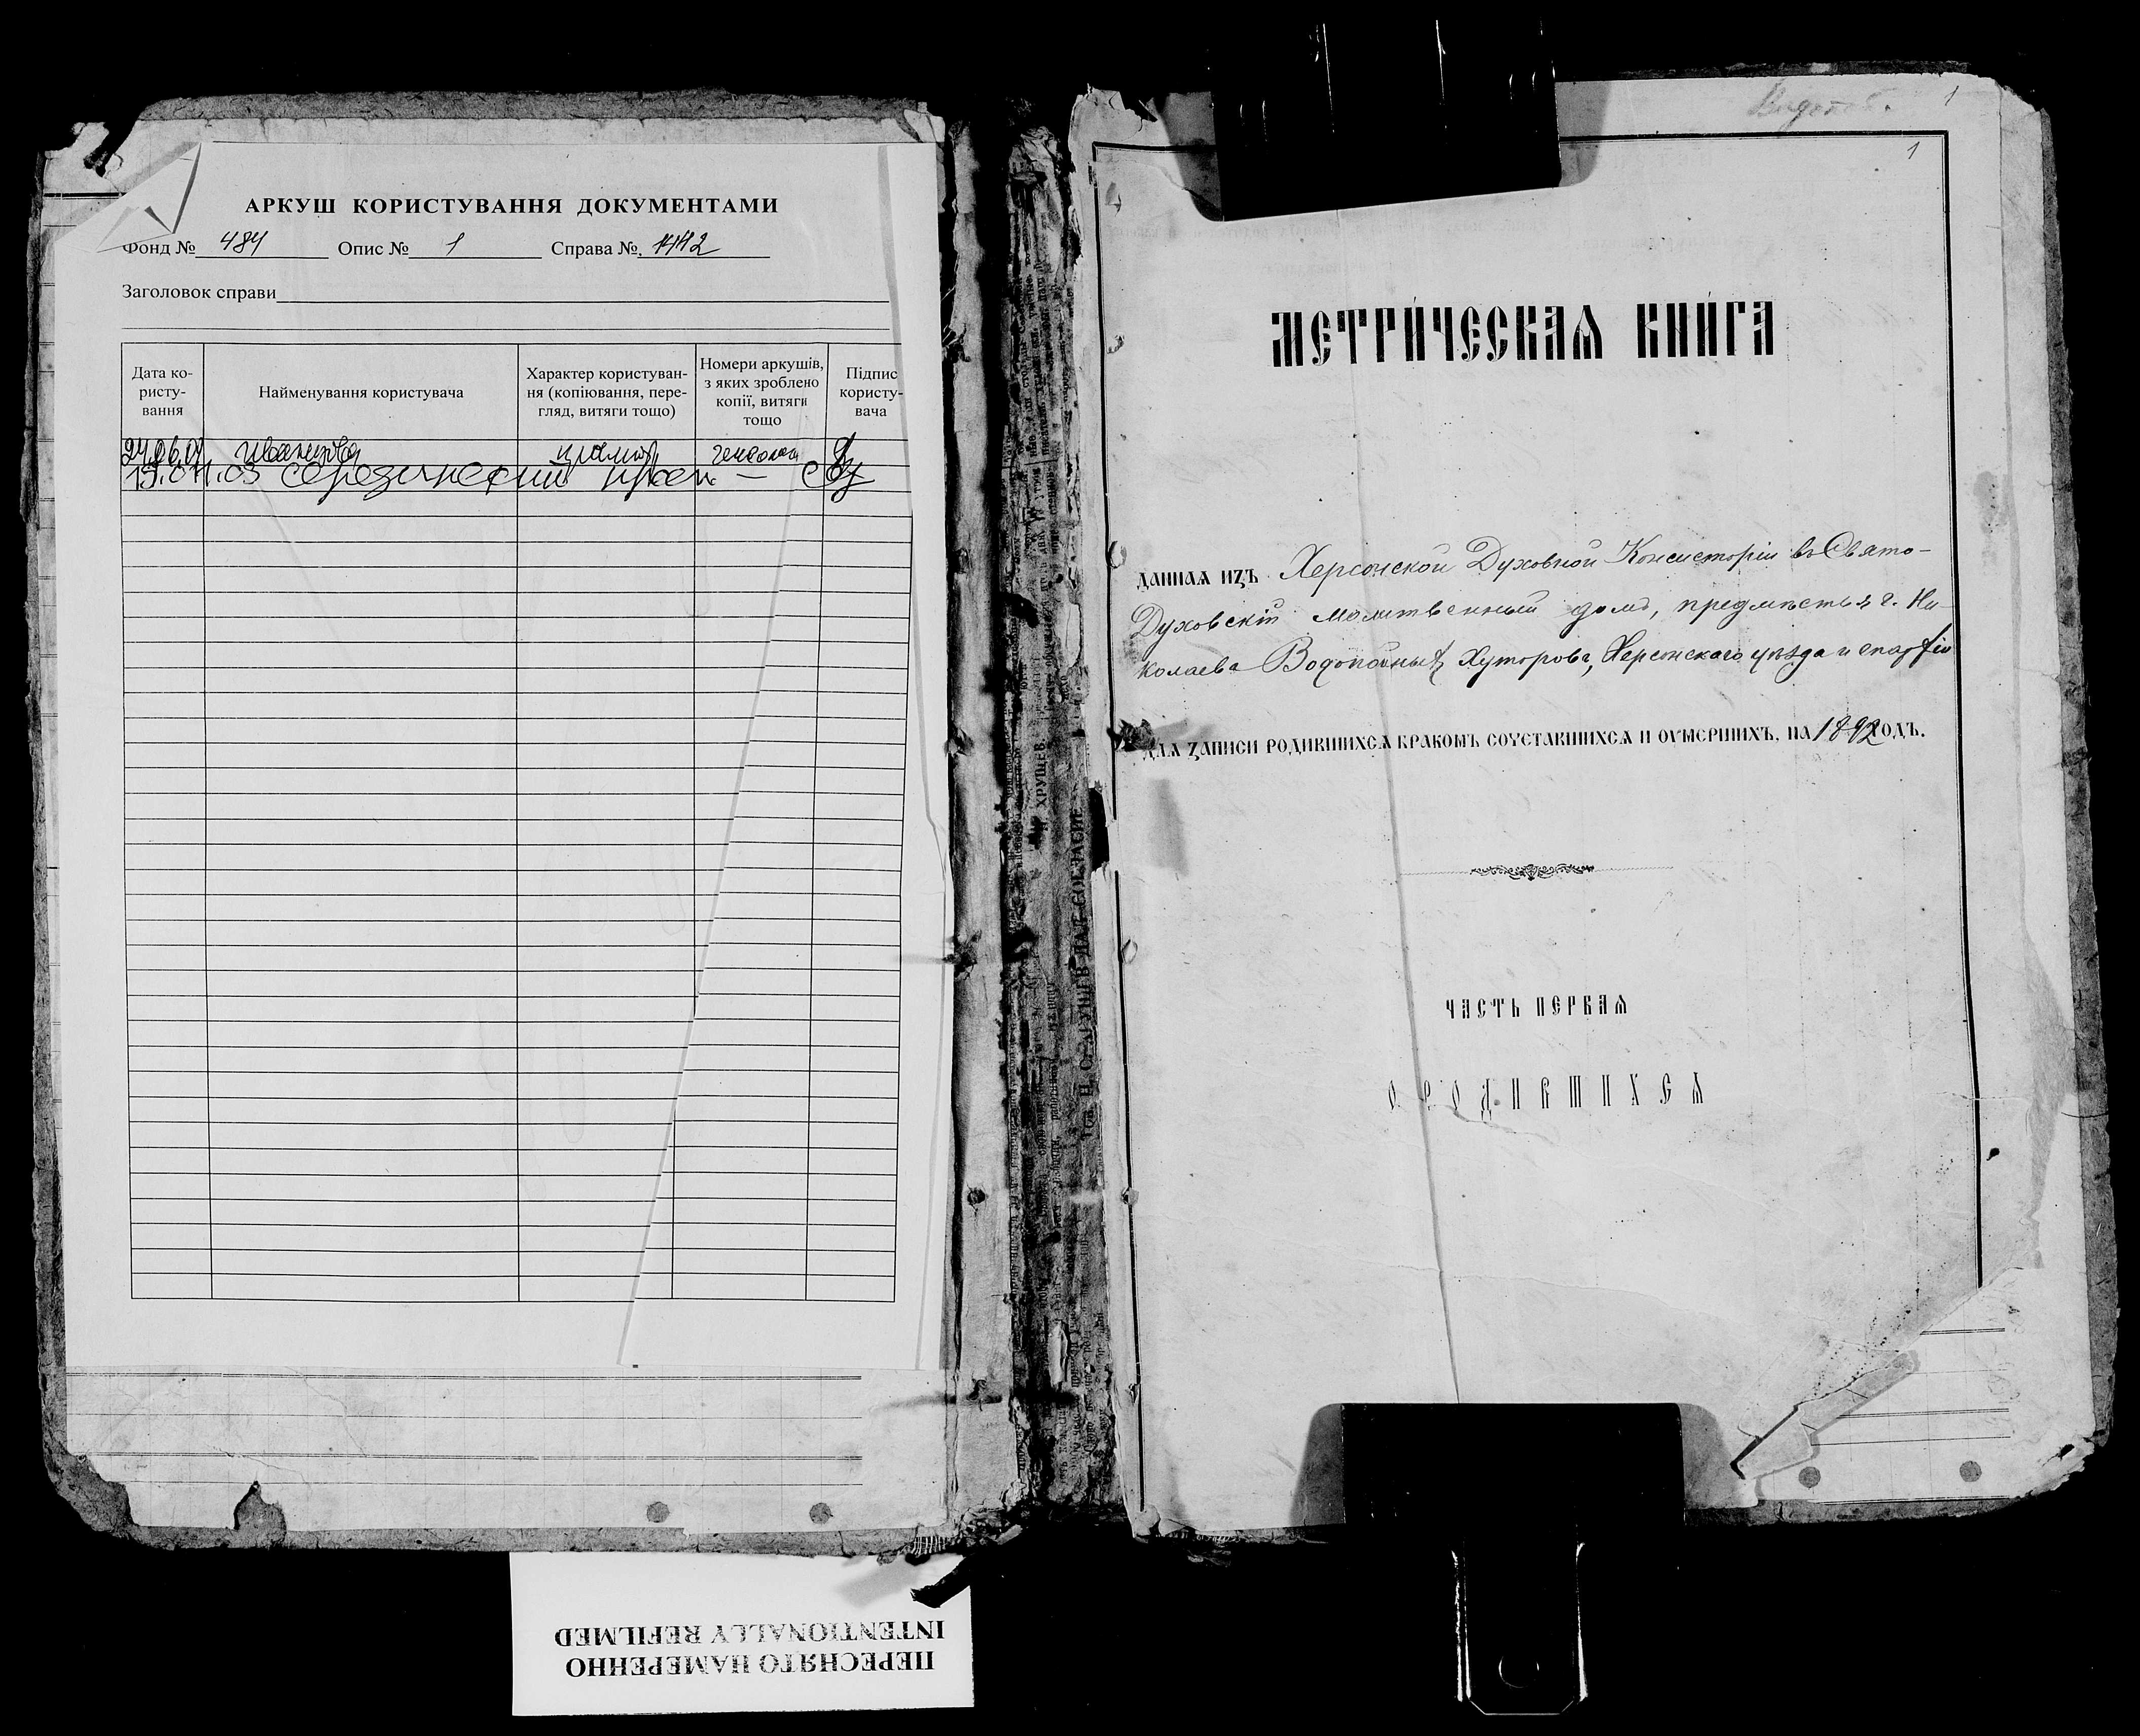 АРКУШ КОРИСТУВАННЯ ДОКУМЕНТАМИ
Фонд № 484 Опис № 1 Справа № 1442
Заголовок справи
Дата ко-
ристу-
вання
Найменування користувача
Характер користуван-
ня (копіювання, пере-
гляд, витяги тощо)
Номери аркушів,
з яких зроблено
копії, витяги
тощо
Підпис
користу-
вача
ПЕРЕСНЯТО НАМЕРЕННО
INTENTIONALLY REFILMED
1
1
МЕТРИ́ЧЕСКАЯ КНИ́ГА
ДАННАЯ ИЗЪ Херсонской Духовной Консисторіи въ Свято-
Духовскій молитвенный домъ, предмѣстья г. Ни-
колаева Водопойныхъ Хуторовъ, Херсонскаго уѣзда и епархіи
ДЛЯ ЗАПИСИ РОДИВШИХСЯ БРАКОМЪ СОЧЕТАВШИХСЯ И ОУМЕРШИХЪ, НА 1892 ГОДЪ.
ЧАСТЬ ПЕРВАЯ
О РОДИВШИХСЯ